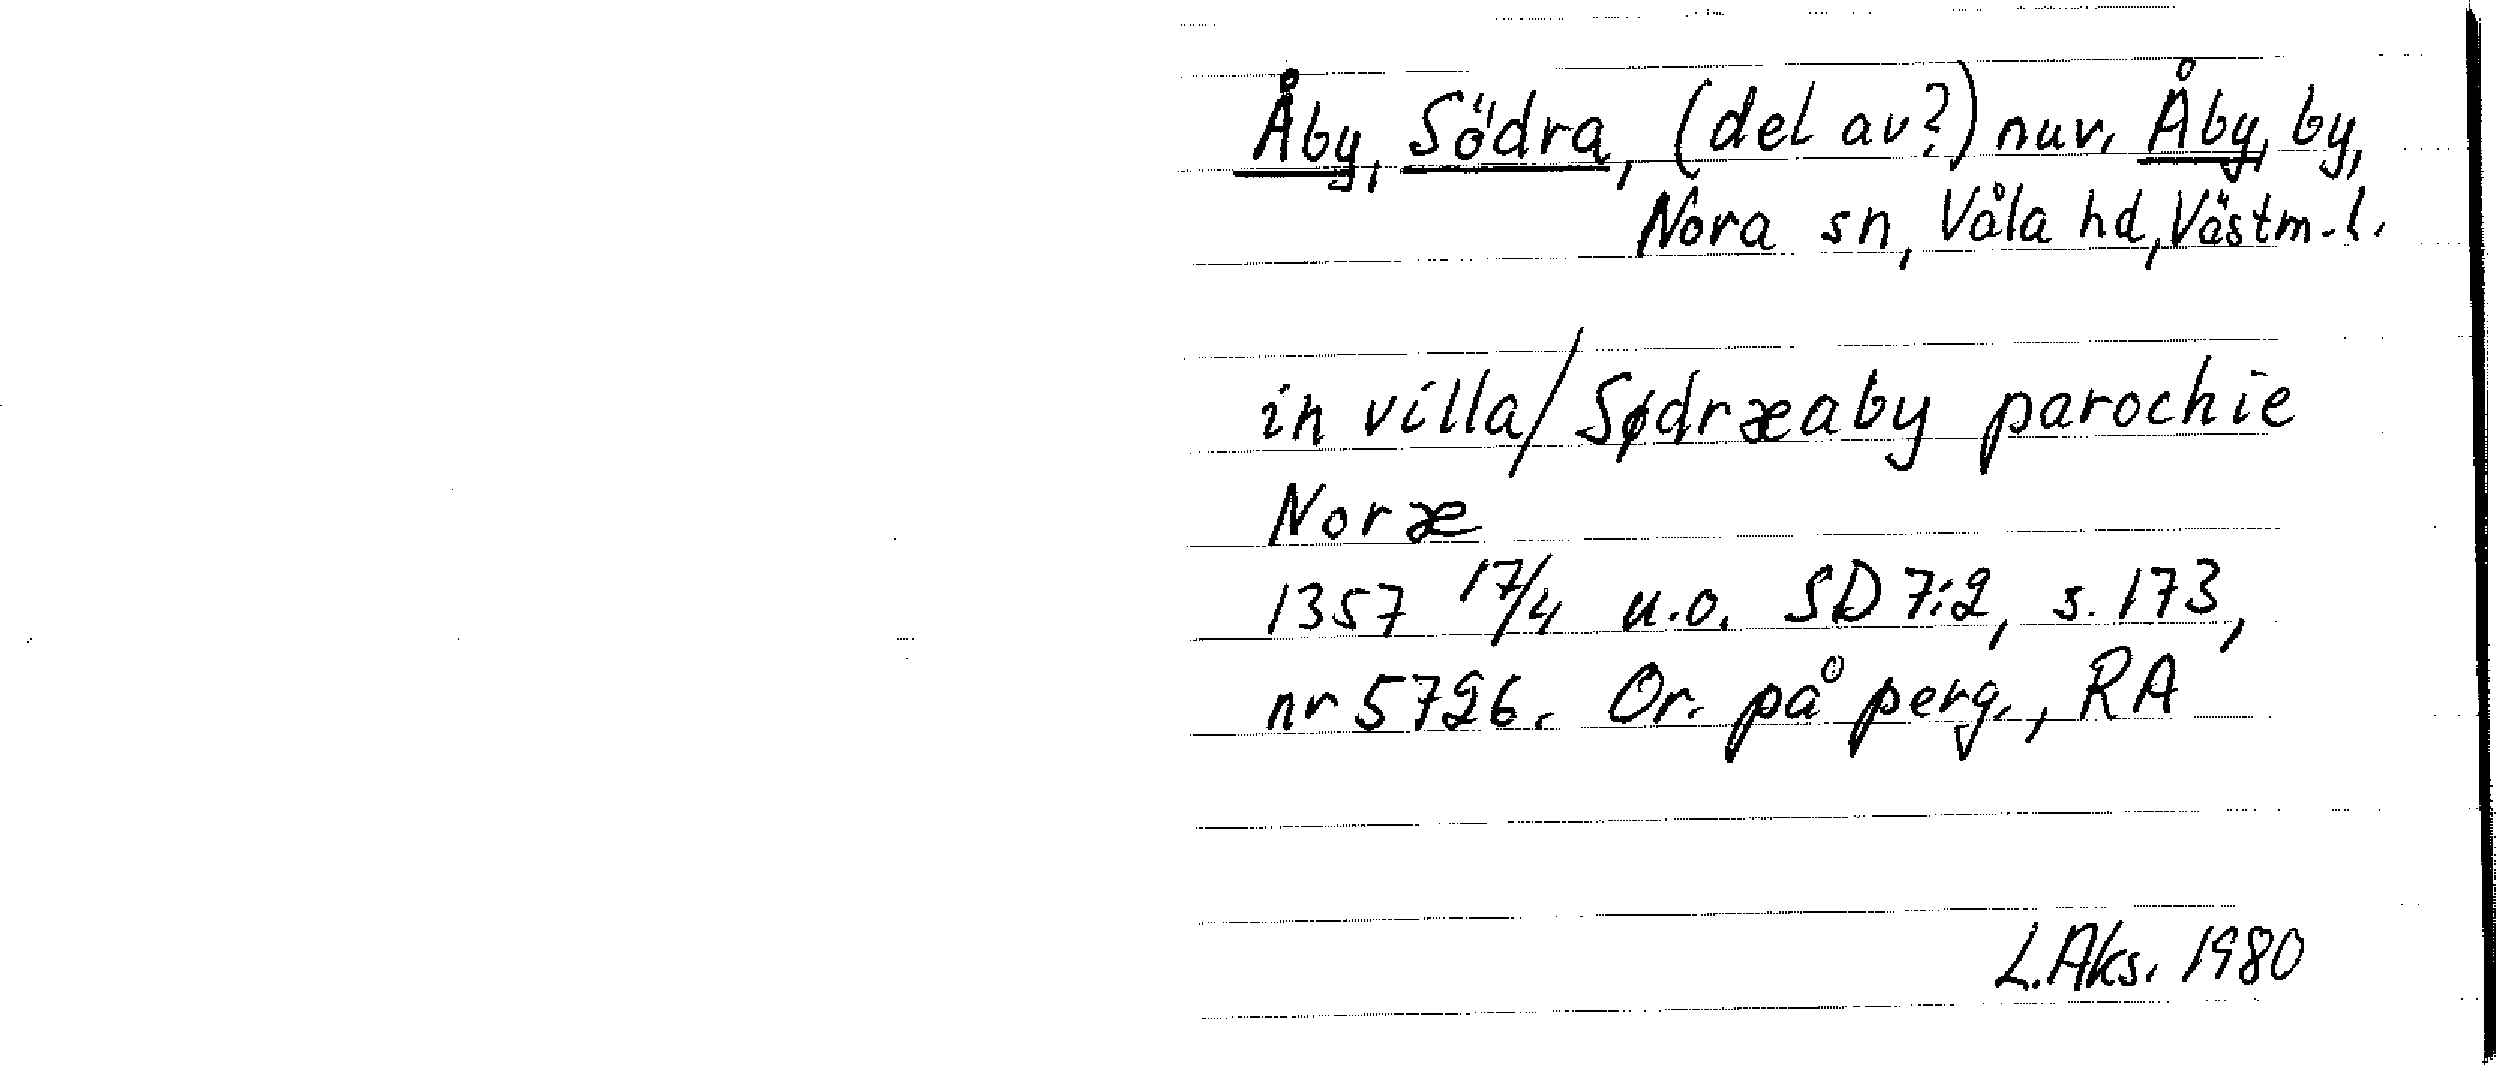 Åby, Södra, (del av?) nuv. Åby, by,
Nora sn, Våla hd, Västm. l.
in villa/Sødræaby parochie
Noræ
1357 17/4 u.o. SD 7:2, s. 173,
nr 5726. Or. på perg., RA
L.Aks. 1980